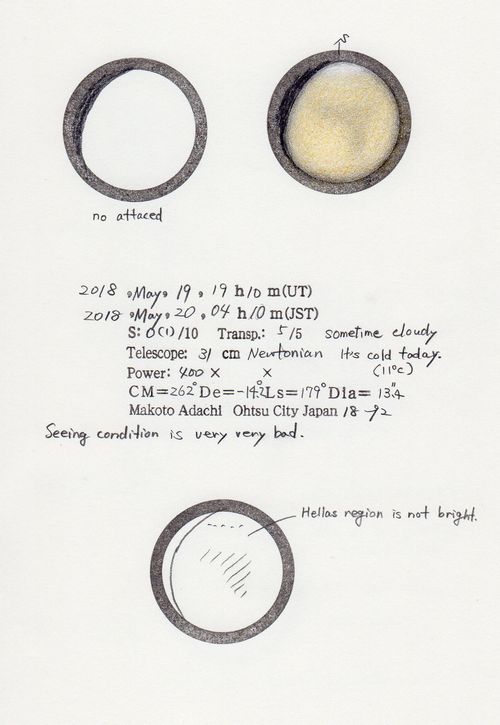 S
no attaced
2018, May, 19, 19 h 10 m (UT)
2018, May, 20, 04 h 10 m (JST)
S: 0(1)/10 Transp.: 5/5 sometime cloudy
Telescope: 31 cm Newtonian It's cold today.
Power: 400 × × (11°c)
CM=262° De=-14.2° Ls=179° Dia= 13.4"
Makoto Adachi Ohtsu City Japan 18-42
Seeing condition is very very bad.
Hellas region is not bright.